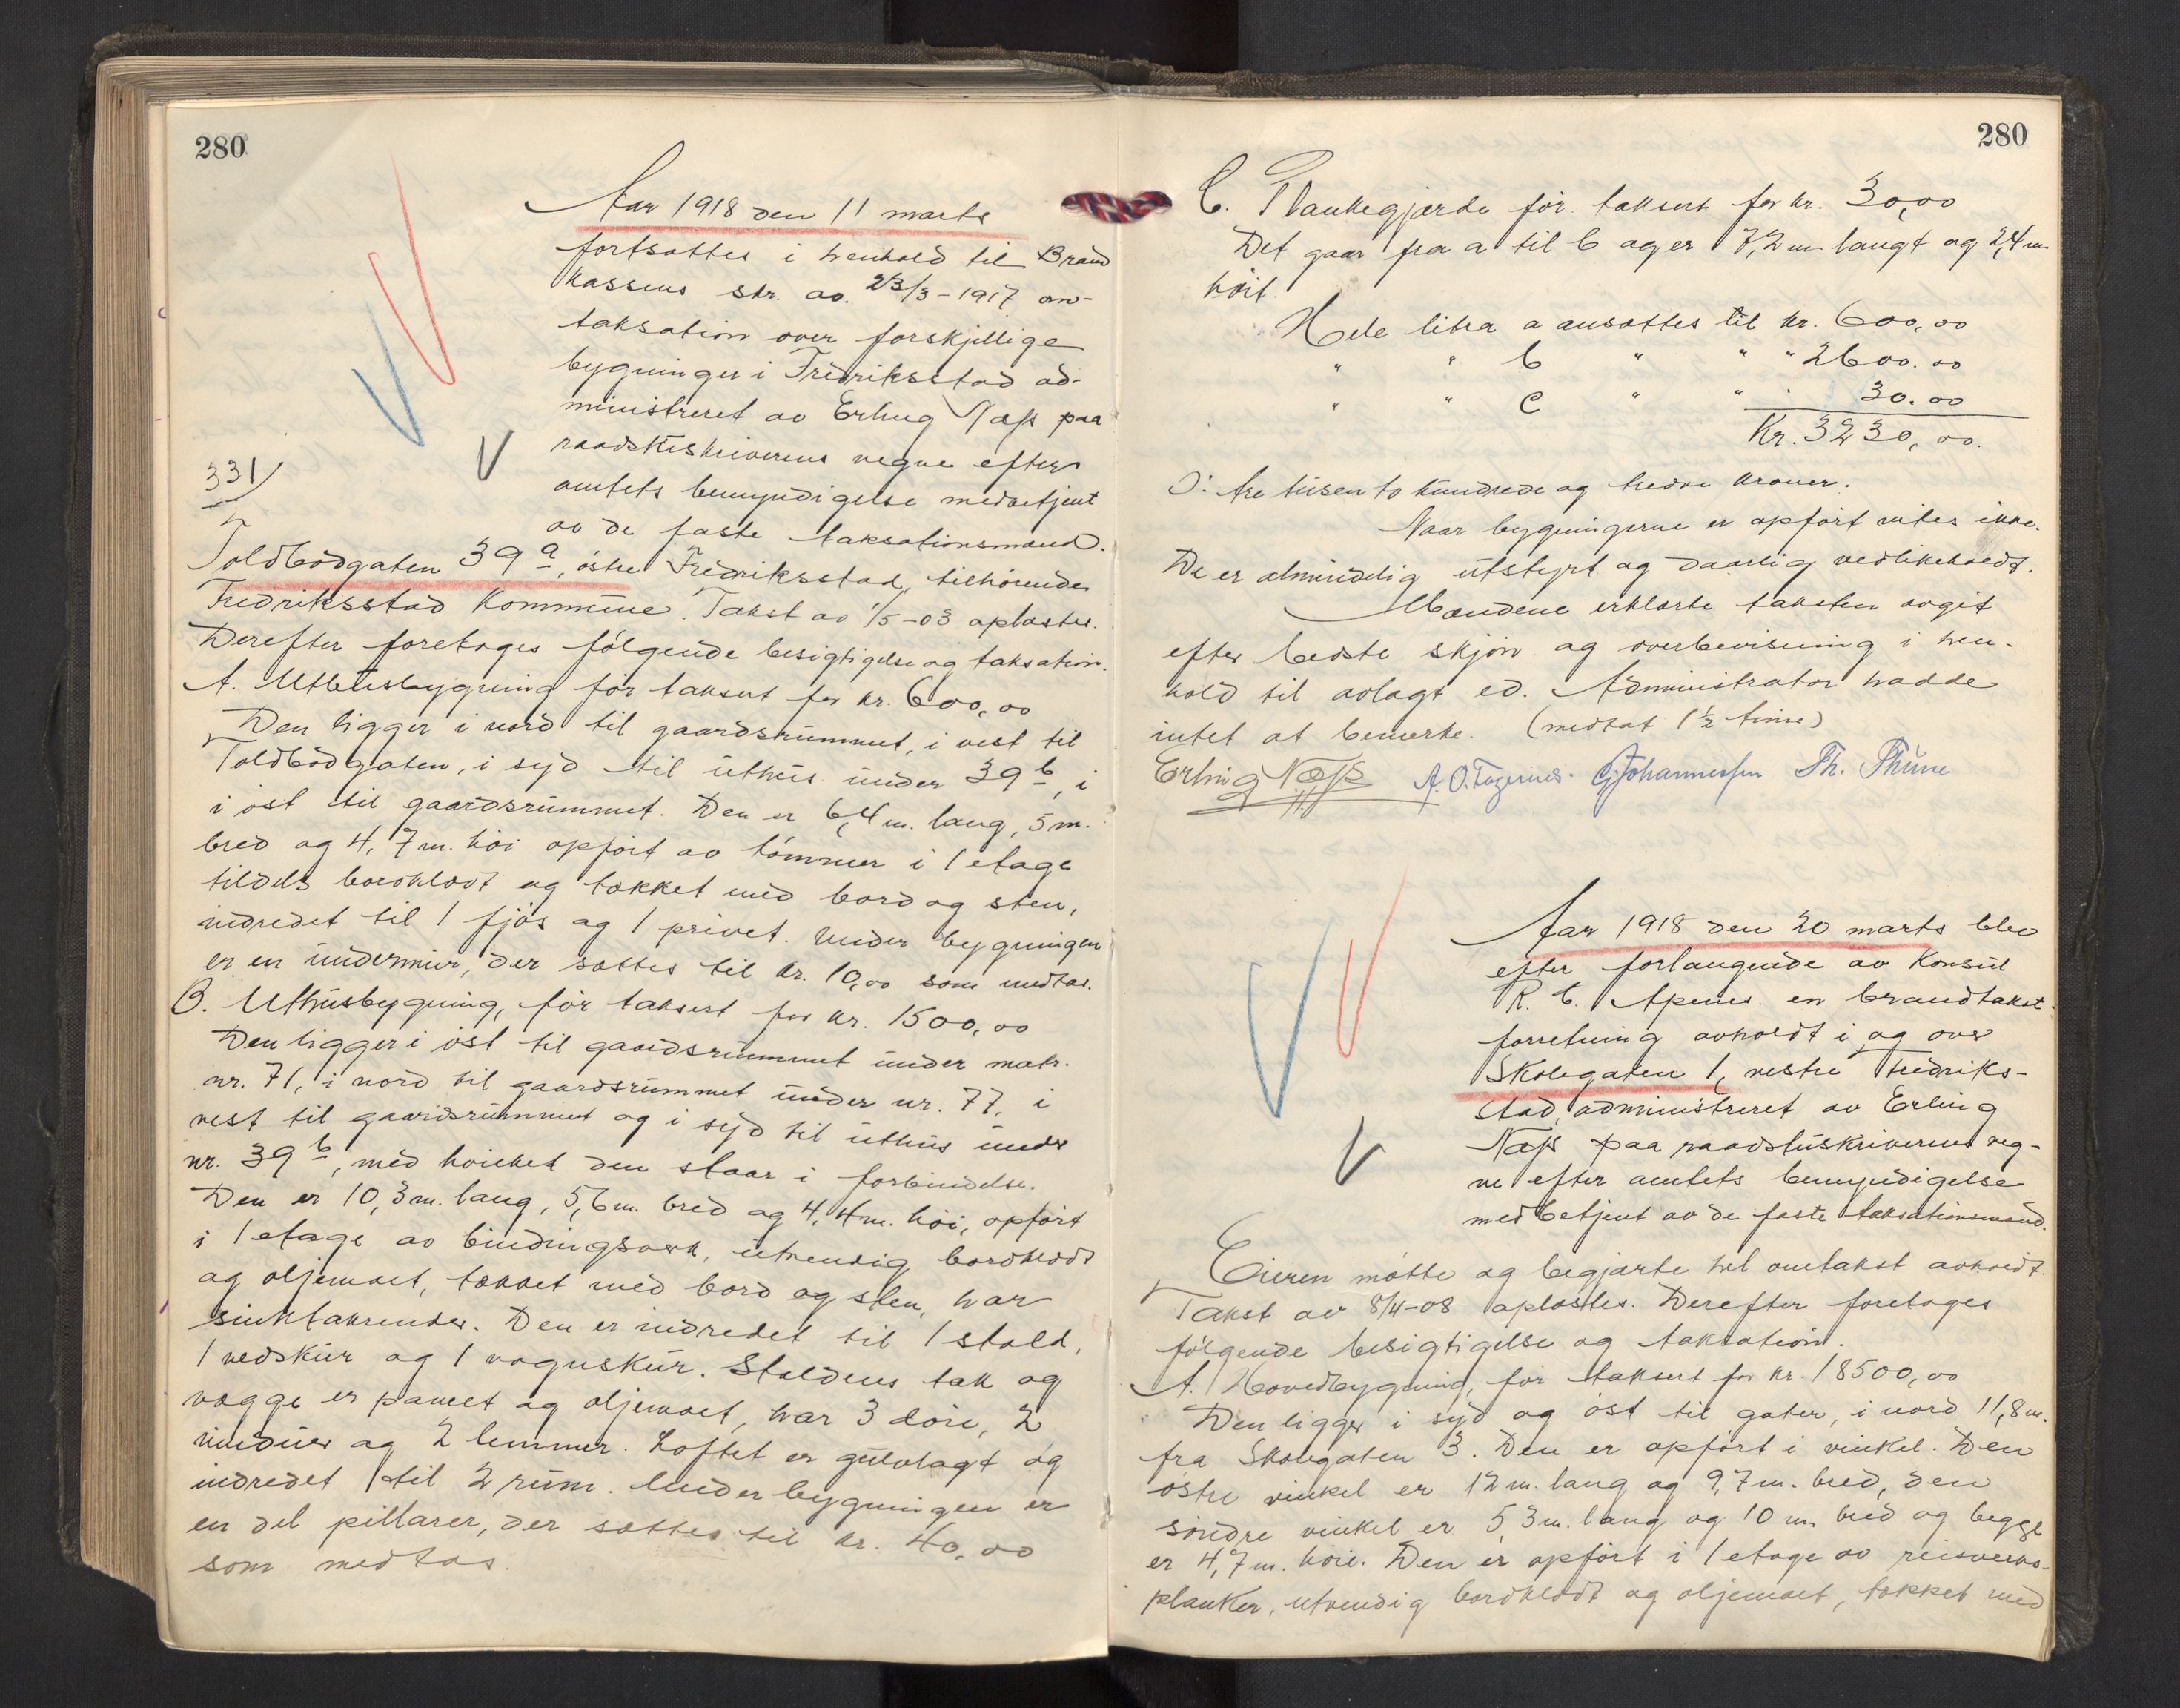 280
Aar 1918 den 11 marts
fortsattes i henhold til Brand
kassens skr. av. 23/3-1917 om-
taksation over forskjellige
bygninger i Fredriksstad ad-
ministreret av Erling Næss paa
raadstuskriverens vegne efter
amtets bemyndigelse medbetjent
av de faste taksationsmænd.
331/
Toldbodgaten 39 a, østre Fredriksstad, tilhørende
Fredriksstad Kommune. Takst av 1/5-03 oplæstes.
Derefter foretoges følgende besigtigelse og taksation.
A. Uthusbygning før taksert for kr. 600,00
Den ligger i nord til gaardsrummet, i vest til
Toldbodgaten, i syd til uthus under 39 b, i
i øst til gaardsrummet. Den er 6,4 m. lang, 5 m.
bred og 4,7 m. høi opført av tømmer i 1 etage
tildels bordklædt og tækket med bord og sten,
indredet til 1 fjøs og 1 privet. Under bygningen
er en undermur, der sættes til kr. 10,00 som medtas.
B. Uthusbygning, før taksert for kr. 1500,00
Den ligger i øst til gaardsrummet under matr.
nr. 71, i nord til gaardsrummet under nr. 77, i
vest til gaardsrummet og i syd til uthus under
nr. 39 b, med hvilket den staar i forbindelse.
Den er 10,3 m. lang, 5,6 m. bred og 4,4 m. høi, opført
i 1 etage av bindingsverk, utvendig bordklædt
og oljemalt, tækket med bord og sten, har
sinktakrender. Den er indredet til 1 stald,
1 vedskur og 1 vognskur. Staldens tak og
vægge er panelt og oljemalt, har 3 døre, 2
vinduer og 2 lemmer. Loftet er gulvlagt og
indredet til 2 rum. Under bygningen er
en del pillarer, der sættes til kr. 40,00
som medtas.
280
C. Plankegjærde før taksert for kr. 30,00
Det gaar fra a til b og er 7,2 m langt og 2,4 m
høit.
Hele litra a ansættes til kr. 600,00
" " b " " " 2600.00
" " c " " " 30.00
Kr. 3230,00.
ɔ: tre tusen to hundrede og tredve kroner.
Naar bygningerne er opført vites ikke.
De er almindelig utstyrt og daarlig vedlikeholdt.
Mændene erklærte taksten avgit
efter bedste skjøn og overbevisning i hen-
hold til avlagt ed. Administrator hadde
intet at bemerke. (medtat 1 1/2 time)
Erling Næss A. O. C. Johannessen Th. Thune
Aar 1918 den 20 marts blev
efter forlangende av Konsul
R. C. Apenes en brandtakst-
forretning avholdt i og over
Skolegaten 1, vestre Fredriks-
stad, administreret av Erling
Næss paa raadstuskriverens veg-
ne efter amtets bemyndigelse
med betjent av de faste taksationsmænd.
Eieren møtte og begjærte hel omtakst avholdt.
Takst av 8/4-08 oplæstes. Derefter foretoges
følgende besigtigelse og taksation.
A. Hovedbygning, før taksert for kr. 18500,00
Den ligger i syd og øst til gater, i nord 11,8 m.
fra Skolegaten 3. Den er opført i vinkel. Den
østre vinkel er 12 m. lang og 9,7 m. bred, den
søndre vinkel er 5,3 m. lang og 10 m. bred og begge
er 4,7 m. høie. Den er opført i 1 etage av reisverks-
planker, utvendig bordklædt og oljemalt, tækket med